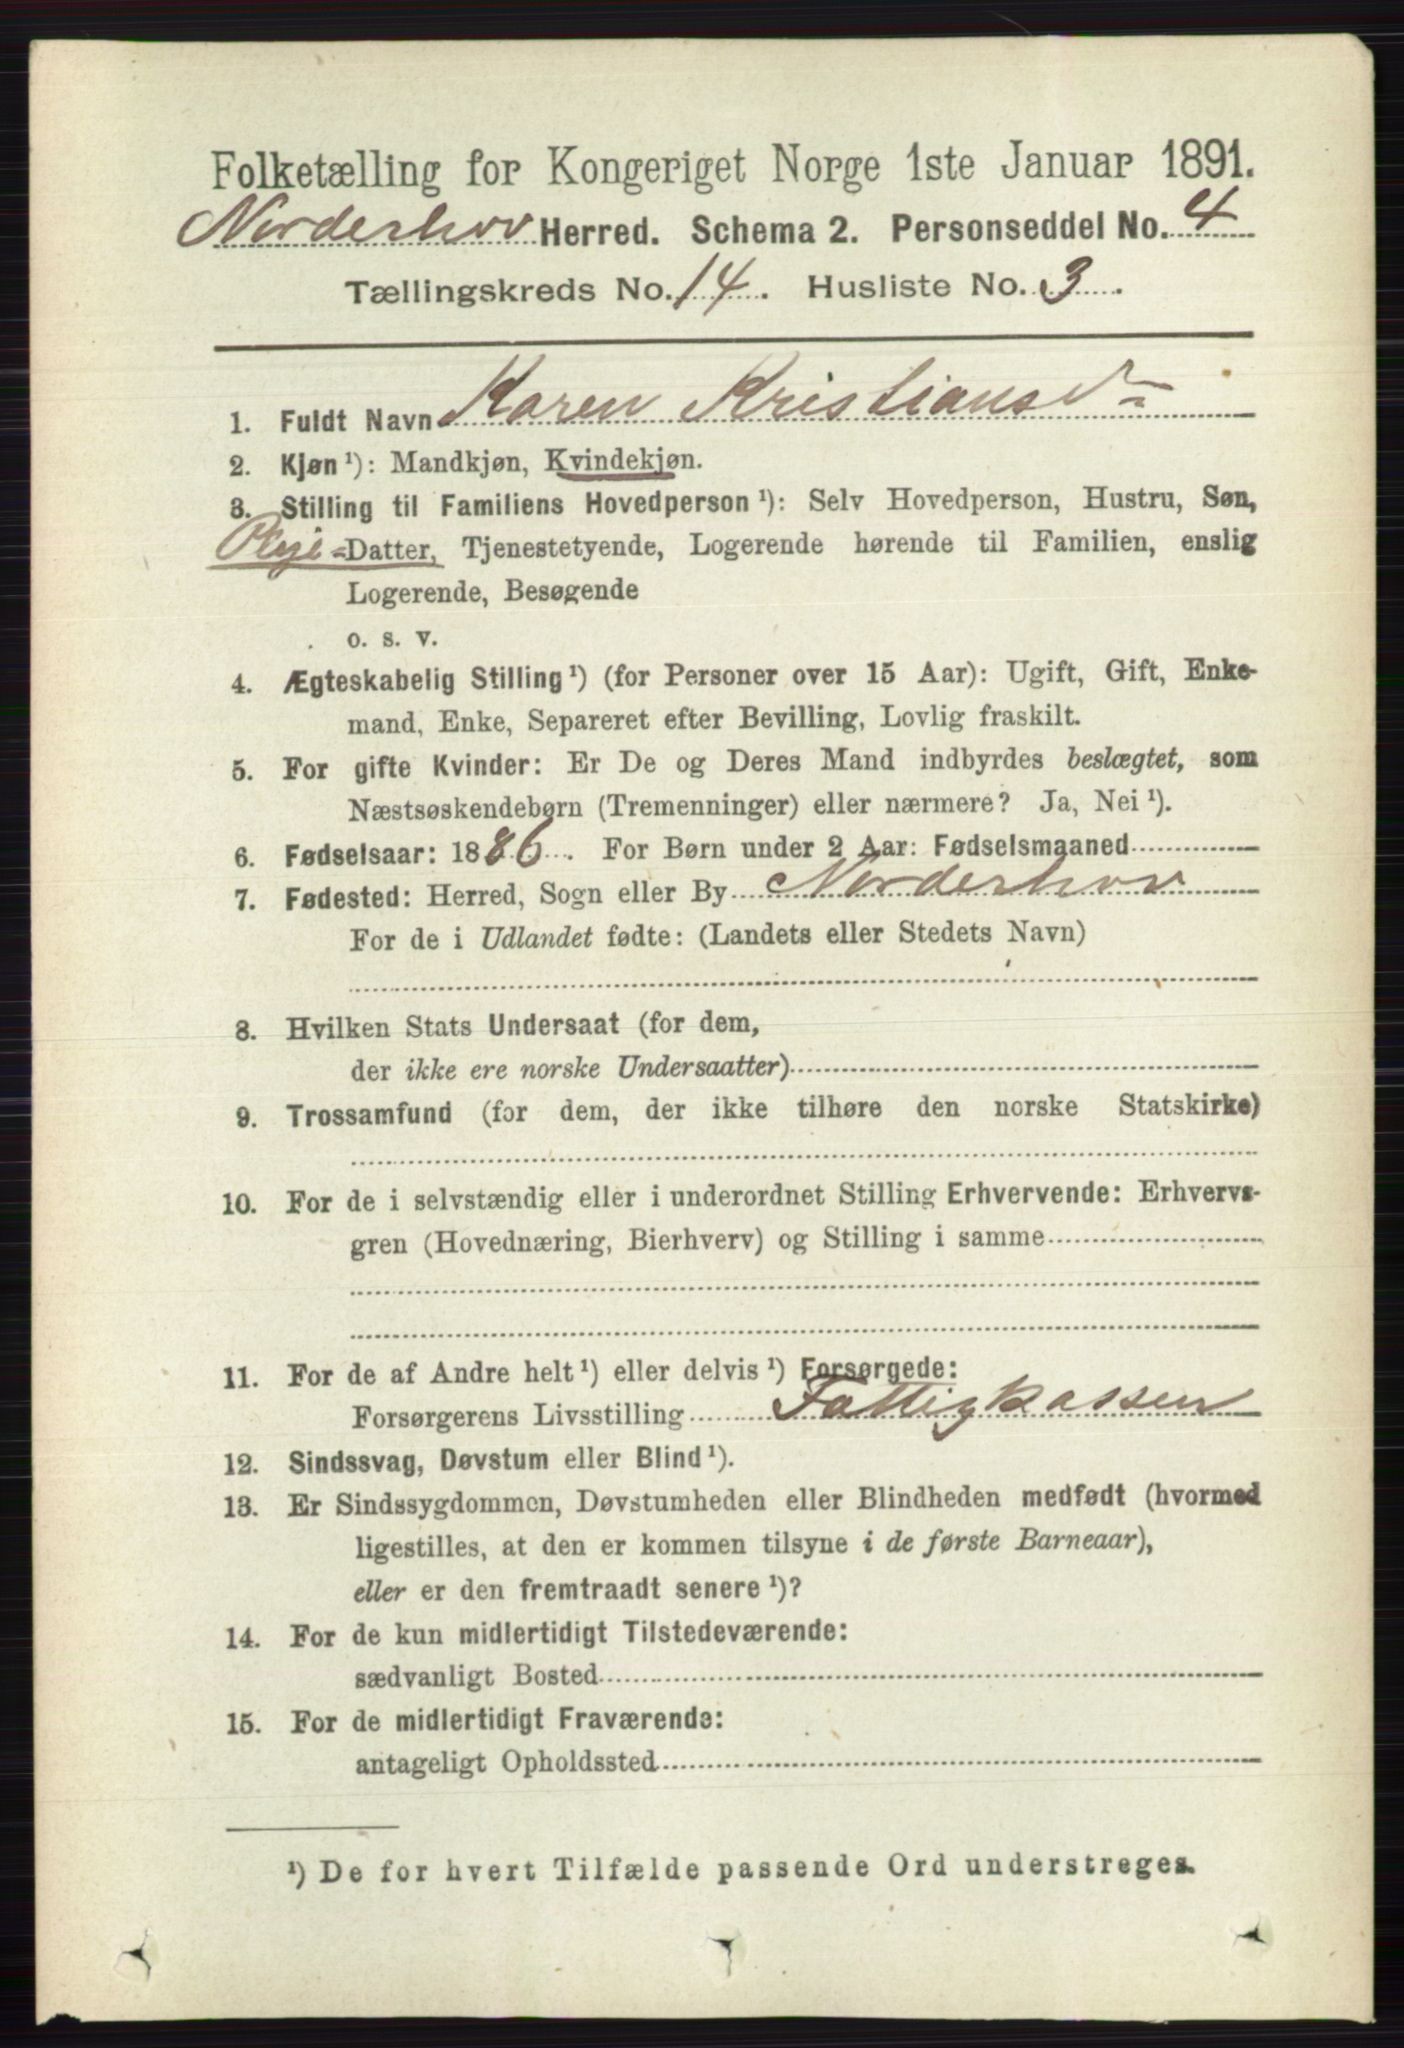 Folketælling for Kongeriget Norge 1ste Januar 1891.
Norderhov Herred. Schema 2. Personseddel No. 4
Tællingskreds No. 14. Husliste No. 3.
1. Fuldt Navn Karen Kristiansd.
2. Kjøn ¹): Mandkjøn, Kvindekjøn.
3. Stilling til Familiens Hovedperson ¹): Selv Hovedperson, Hustru, Søn,
Pleje-Datter, Tjenestetyende, Logerende hørende til Familien, enslig
Logerende, Besøgende
o. s. v.
4. Ægteskabelig Stilling ¹) (for Personer over 15 Aar): Ugift, Gift, Enke-
mand, Enke, Separeret efter Bevilling, Lovlig fraskilt.
5. For gifte Kvinder: Er De og Deres Mand indbyrdes beslægtet, som
Næstsøskendebørn (Tremenninger) eller nærmere? Ja, Nei ¹).
6. Fødselsaar: 1886. For Børn under 2 Aar: Fødselsmaaned
7. Fødested: Herred, Sogn eller By Norderhov
For de i Udlandet fødte: (Landets eller Stedets Navn)
8. Hvilken Stats Undersaat (for dem,
der ikke ere norske Undersaatter)
9. Trossamfund (for dem, der ikke tilhøre den norske Statskirke)
10. For de i selvstændig eller i underordnet Stilling Erhvervende: Erhvervs-
gren (Hovednæring, Bierhverv) og Stilling i samme
11. For de af Andre helt ¹) eller delvis ¹) Forsørgede:
Forsørgerens Livsstilling Fattigkassen
12. Sindssvag, Døvstum eller Blind ¹).
13. Er Sindssygdommen, Døvstumheden eller Blindheden medfødt (hvormed
ligestilles, at den er kommen tilsyne i de første Barneaar),
eller er den fremtraadt senere ¹)?
14. For de kun midlertidigt Tilstedeværende:
sædvanligt Bosted
15. For de midlertidigt Fraværende:
antageligt Opholdssted
¹) De for hvert Tilfælde passende Ord understreges.